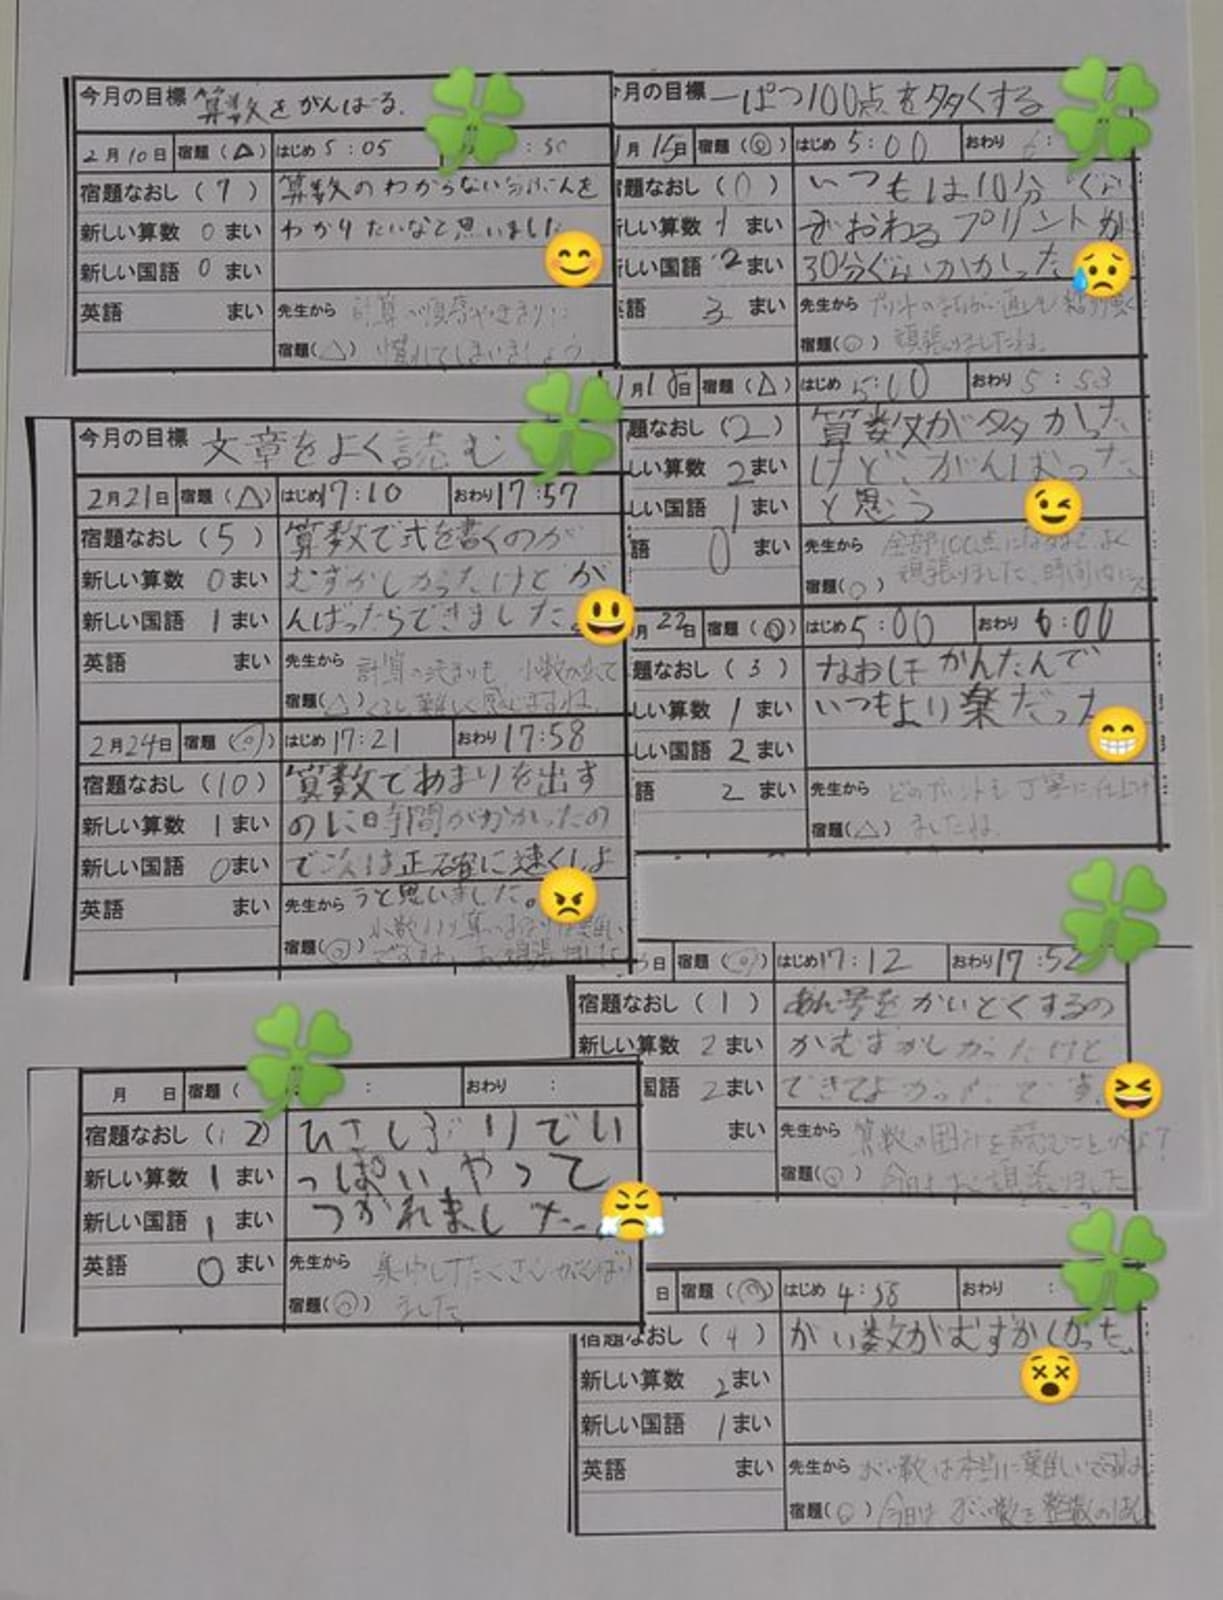 今月の目標 算数をがんばる.
2月10日 宿題(△) はじめ5:05
宿題なおし(7) 算数のわからない
新しい算数 0まい わかりたいなと思いました
新しい国語 0まい
英語 まい 先生から
宿題(△) 慣れてしまいましょう。
今月の目標 文章をよく読む
2月21日 宿題(△) はじめ17:10 おわり17:57
宿題なおし(5) 算数で式を書くのが
新しい算数 0まい むずかしかったけどが
新しい国語 1まい んばったらできました。
英語 まい 先生から
宿題(△)
2月24日 宿題(◎) はじめ17:21 おわり17:58
宿題なおし(10) 算数であまりを出す
新しい算数 1まい のに時間がかかったの
新しい国語 0まい で次は正確に速くしよ
英語 まい 先生から うと思いました。
宿題(◎)
月 日 宿題( : おわり :
宿題なおし(12) ひさしぶりでい
新しい算数 1まい っぱいやって
新しい国語 1まい つかれました。
英語 0まい 先生から 集中してたくさんがんばり
宿題(◎) ました
月の目標 一ぱつ100点を多くする
1月15日 宿題(◎) はじめ5:00 おわり
宿題なおし(0) いつもは10分ぐら
新しい算数 1まい でおわるプリントが
新しい国語 2まい 30分ぐらいかかった
語 3まい 先生から
宿題(○) 頑張りましたね。
1月18日 宿題(△) はじめ5:00 おわり5:53
題なおし(2) 算数が多かった
しい算数 2まい けど、がんばった
しい国語 1まい と思う
語 0まい 先生から
宿題(○) 頑張りました
月22日 宿題(◎) はじめ5:00 おわり6:00
題なおし(3) なおしはかんたんで
しい算数 1まい いつもより楽だった
しい国語 2まい
語 2まい 先生から どのプリントも丁寧に仕上げ
宿題(△) ましたね
日 宿題(◎) はじめ17:12 おわり17:52
宿題なおし(1) あん号をかいとくするの
新しい算数 2まい がむずかしかったけど
国語 2まい できてよかったです。
まい 先生から
宿題(◎)
日 宿題(◎) はじめ4:58 おわり :
宿題なおし(4) がい数がむずかしかった。
新しい算数 2まい
新しい国語 1まい
英語 まい 先生から がい数は本当に難しいですね
宿題(○) 今日は